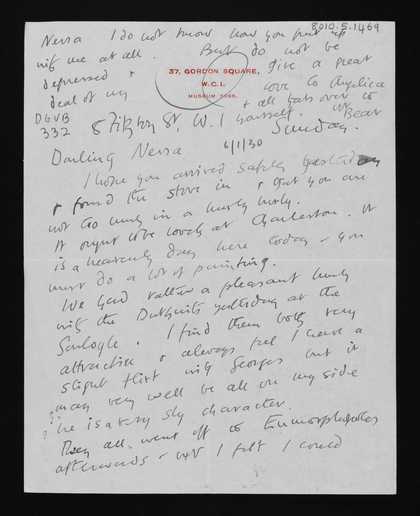 8010.5.1469
Nessa I do not know how you put up
with me at all. But do not be
depressed & give a great
deal of my love to Angelica
& all
37, GORDON SQUARE,
W.C.1.
MUSEUM
DGVB
332
8 Fitzroy St, W. 1 yourself.
Bear
Sunday.
6/1/30
Darling Nessa
I hope you arrived safely yesterday
& found the stove in & that you are
not too lonely in a
It ought to be lovely at Charleston. It
is a heavenly day here today & you
must do a lot of painting.
We had rather a pleasant lunch
with the Duthuits yesterday at the
I find them both very
attractive & always feel I have a
slight flirt with Georges but it
may very well be all on my side
he is a very sly character.
They all went off to Eumorphopoulos
afterwards & I felt I could